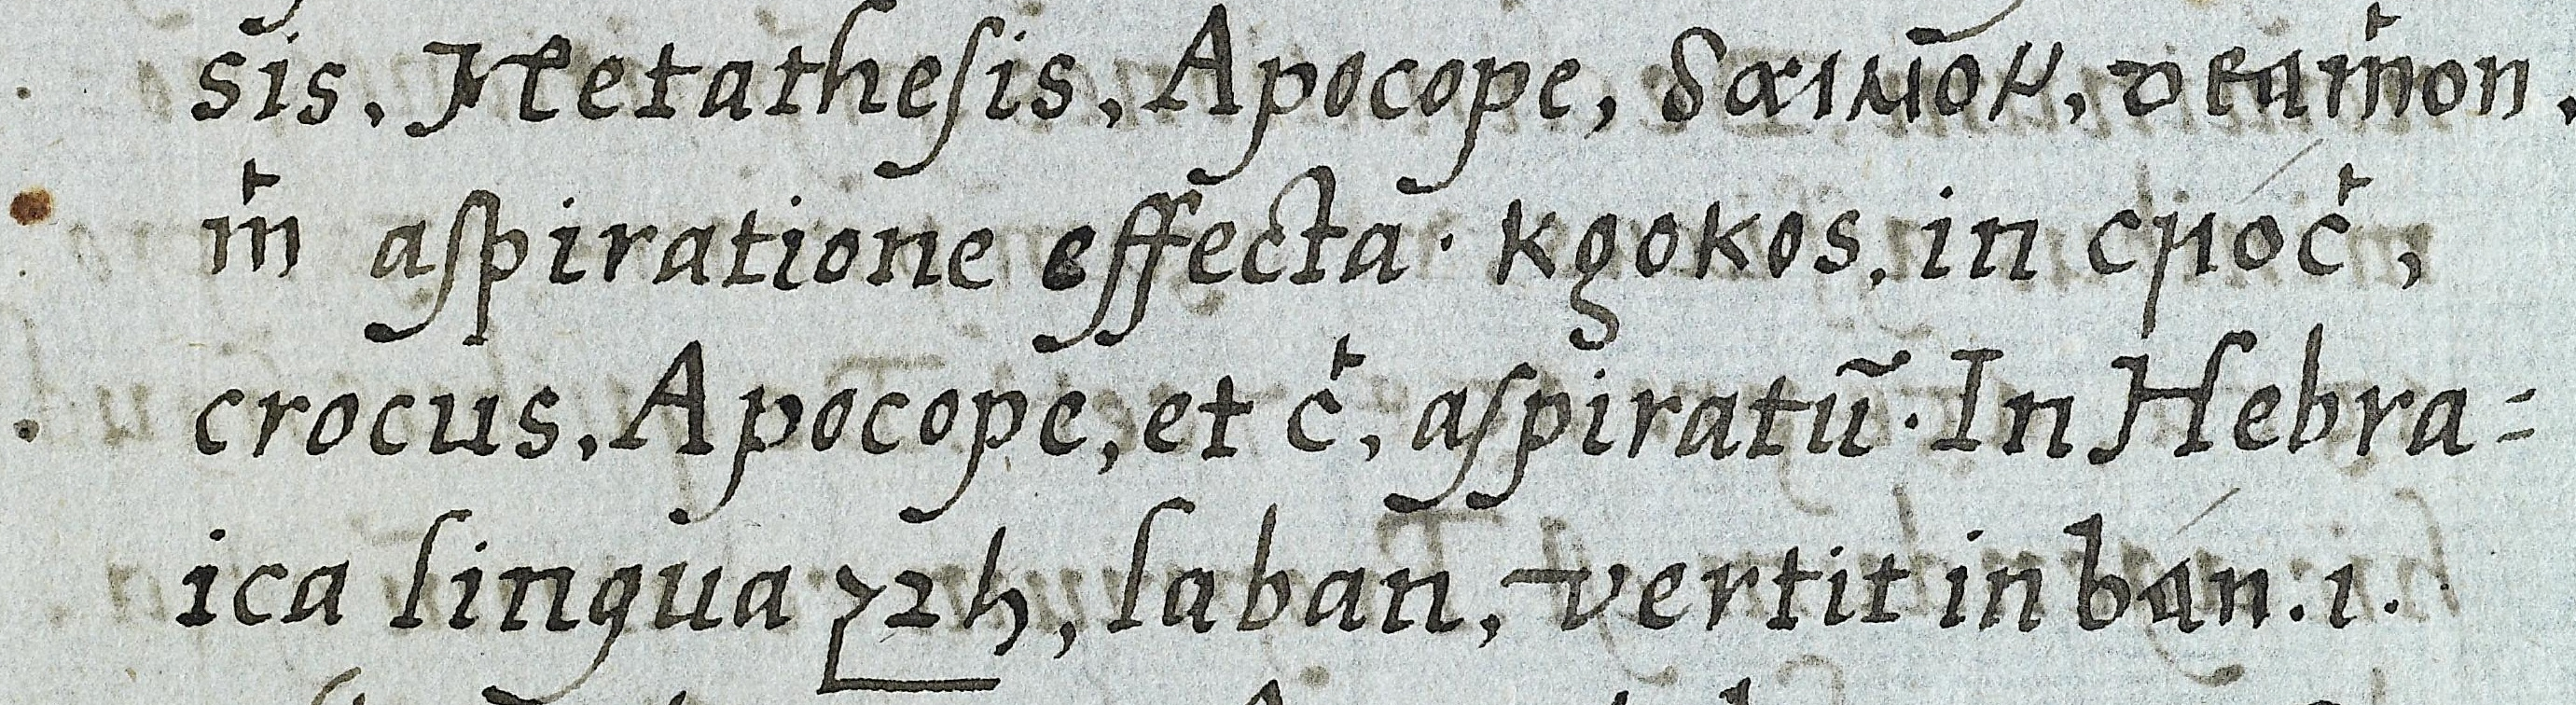 sis. Metathesis. Apocope, δαιμον, deaṁon.
ṁ aspiratione effecta. κροκος. in croċ,
crocus. Apocope, et ċ, aspiratũ. In Hebra=
ica lingua לבן, laban, vertit in bán. i.